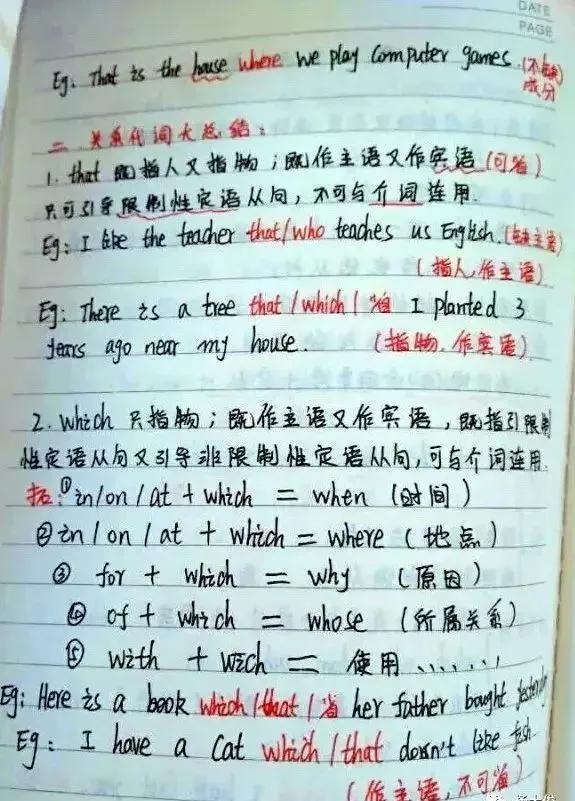 DATE
PAGE
Eg: That is the house where we play computer games. (不缺
成分
二、关系代词大总结:
1. that 既指人又指物;既作主语又作宾语(可省)
只可引导限制性定语从句,不可与介词连用.
Eg: I like the teacher that/who teaches us English. (缺主语)
(指人,作主语)
Eg: There is a tree that / which / 省 I planted 3
years ago near my house. (指物.作宾语)
2. Which 只指物;既作主语又作宾语,既指引限制
性定语从句又引导非限制性定语从句,可与介词连用.
①in/on/at + which = when (时间)
②in/on/at + which = where (地点)
③ for + which = why (原因)
④ of + which = whose (所属关系)
⑤ with + wich = 使用......
Eg: Here is a book which/that/省 her father bought yesterday
Eg: I have a cat which/that doesn't like fish.
(作主语,不可省)